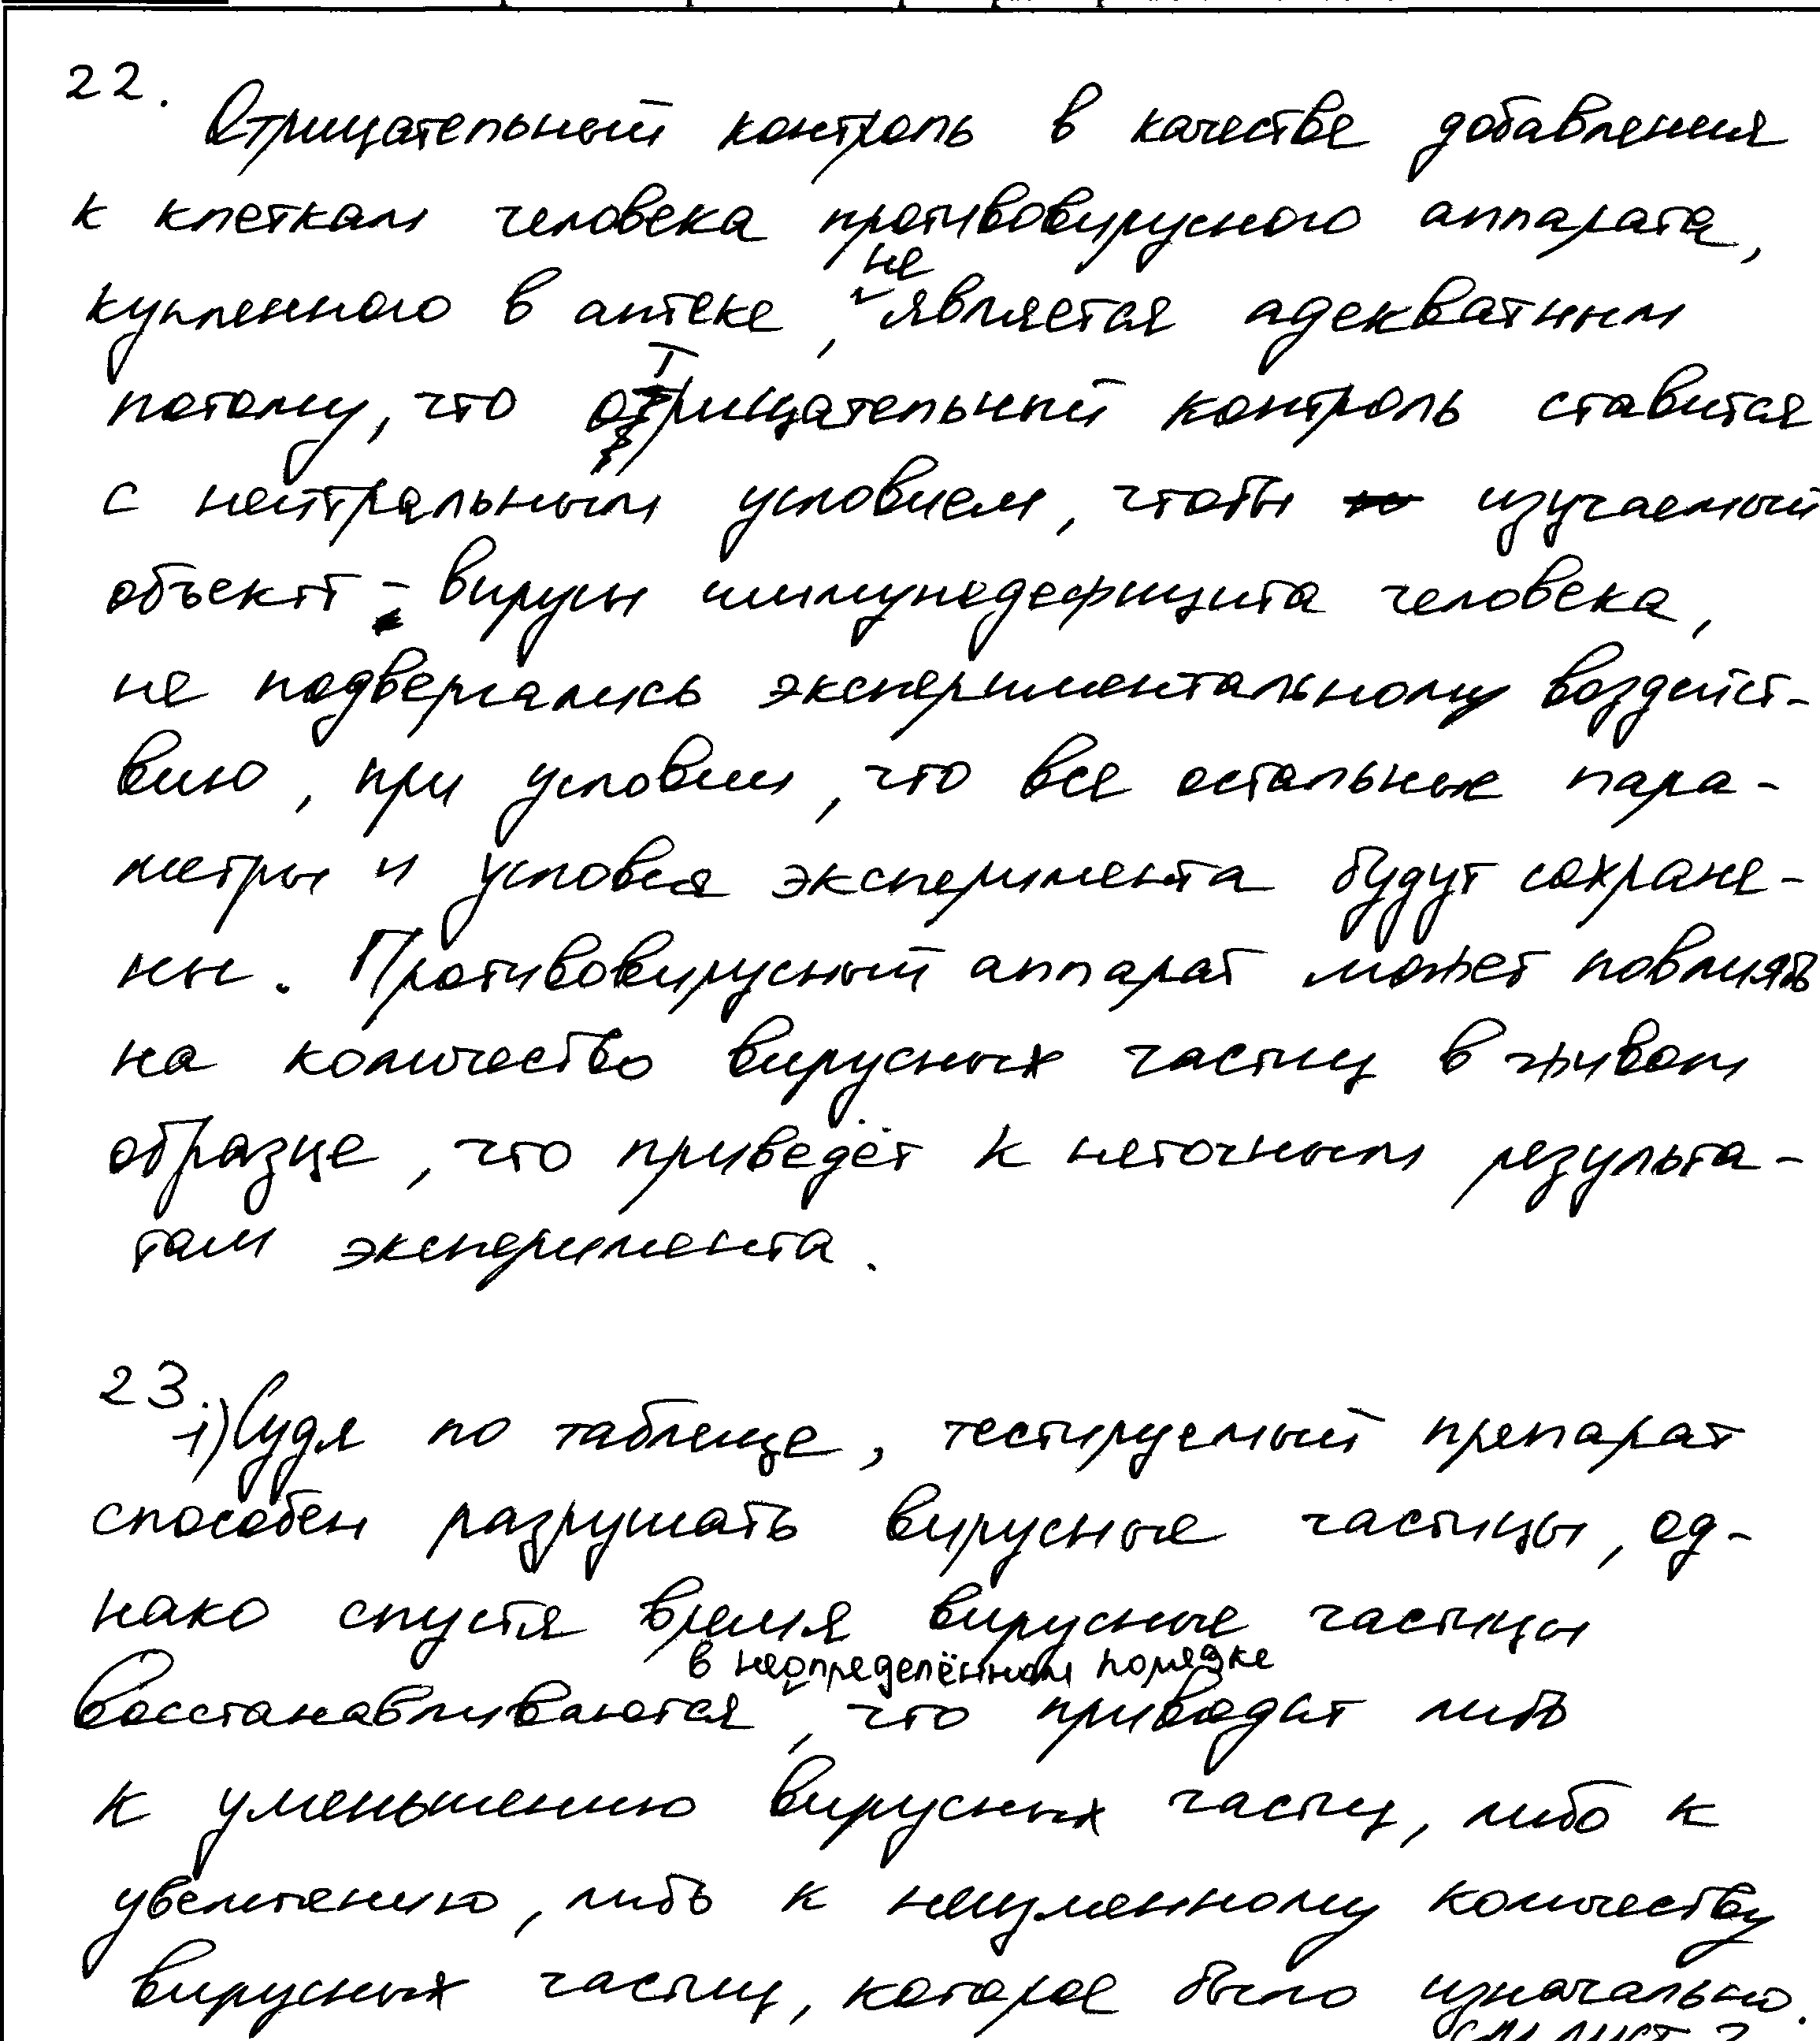 22.
Отрицательный контроль в качестве добавления
к клеткам человека противовирусного аппарата,
купленного в аптеке, не является адекватным
потому, что отрицательный контроль ставится
с нейтральным условием, чтобы изучаемый
объект - вирусы иммунодефицита человека,
не подвергались экспериментальному воздейст-
вию, при условии, что все остальные пара-
метры и условия эксперимента будут сохране-
ны. Противовирусный аппарат может повлиять
на количество вирусных частиц в живом
образце, что приведёт к неточным результа-
там эксперимента.
23.
1) Судя по таблице, тестируемый препарат
способен разрушать вирусные частицы, од-
нако спустя время вирусные частицы
восстанавливаются в неопределённом порядке, что приводит либо
к уменьшению вирусных частиц, либо к
увеличению, либо к неизменному количеству
вирусных частиц, которое было изначально.
см лист 2